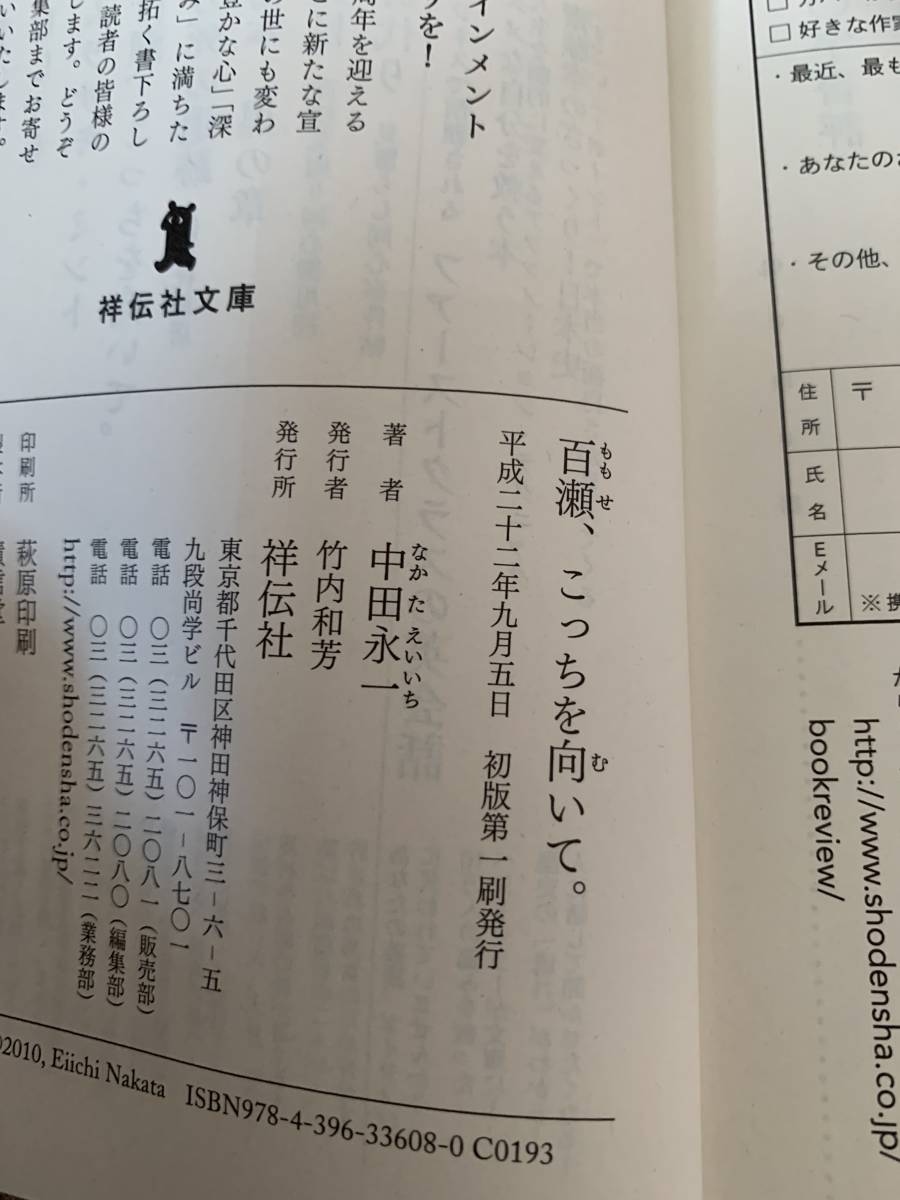 インメント
を！
周年を迎える
に新たな宣
の世にも変わ
豊かな心」「深
み」に満ちた
拓く書下ろし
読者の皆様の
します。どうぞ
集部までお寄せ
いいたします。
祥伝社文庫
百瀬、こっちを向いて。
ももせ
む
平成二十二年九月五日　初版第一刷発行
著者　中田永一
なかた えいいち
発行者　竹内和芳
発行所　祥伝社
東京都千代田区神田神保町三－六－五
九段尚学ビル　〒一〇一－八七〇一
電話　〇三（三二六五）二〇八一（販売部）
電話　〇三（三二六五）二〇八〇（編集部）
電話　〇三（三二六五）三六二二（業務部）
http://www.shodensha.co.jp/
印刷所　萩原印刷
©2010, Eiichi Nakata ISBN978-4-396-33608-0 C0193
□ 好きな作家
・最近、最も
・あなたのお
・その他、
住所　〒
氏名
Eメール
※携
http://www.shodensha.co.jp/
bookreview/